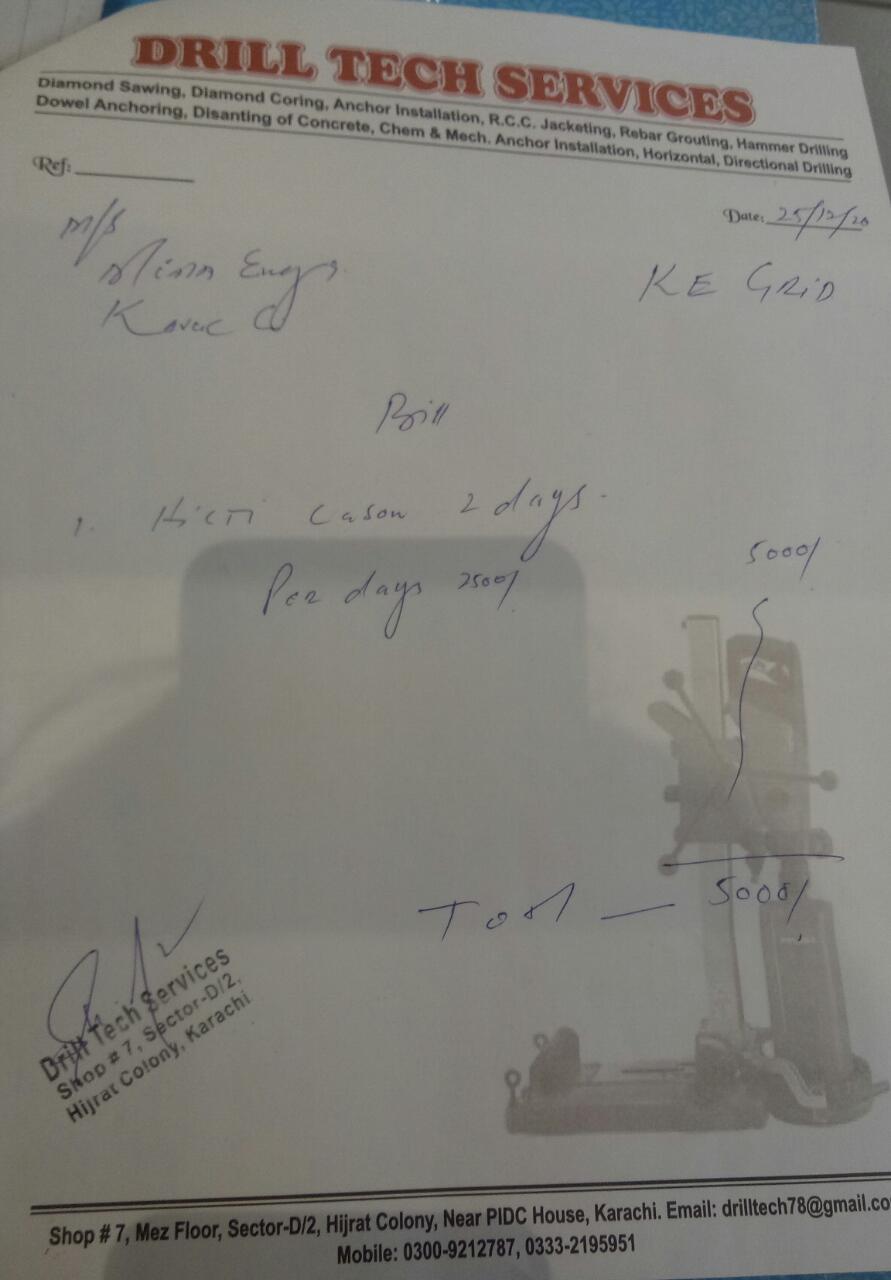 DRILL TECH SERVICES
Diamond Sawing, Diamond Coring, Anchor Installation, R.C.C. Jacketing, Rebar Grouting, Hammer Drilling
Dowel Anchoring, Disanting of Concrete, Chem & Mech. Anchor Installation, Horizontal, Directional Drilling
Ref:
Date: 25/12/20
M/s
Engr.
KE GRID
Bill
1. 2 days.
Per days 2500/
5000/
Total — 5000/
Drill Tech Services
Shop # 7, Sector-D/2,
Hijrat Colony, Karachi
Shop # 7, Mez Floor, Sector-D/2, Hijrat Colony, Near PIDC House, Karachi. Email: drilltech78@gmail.co
Mobile: 0300-9212787, 0333-2195951